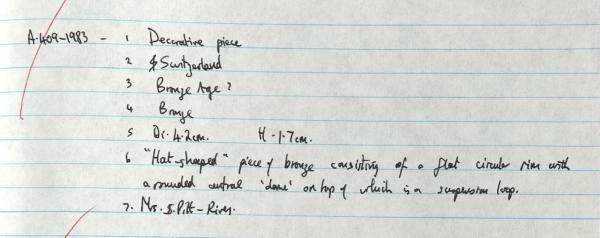 A.409-1983 - 1 Decorative piece
2 Switzerland
3 Bronze Age?
4 Bronze
5 Di. 4.2cm. H. 1.7cm.
6 "Hat-shaped" piece of bronze consisting of a flat circular rim with
a rounded central 'dome' on top of which is a suspension loop.
7. Mrs. S. Pitt-Rivers.